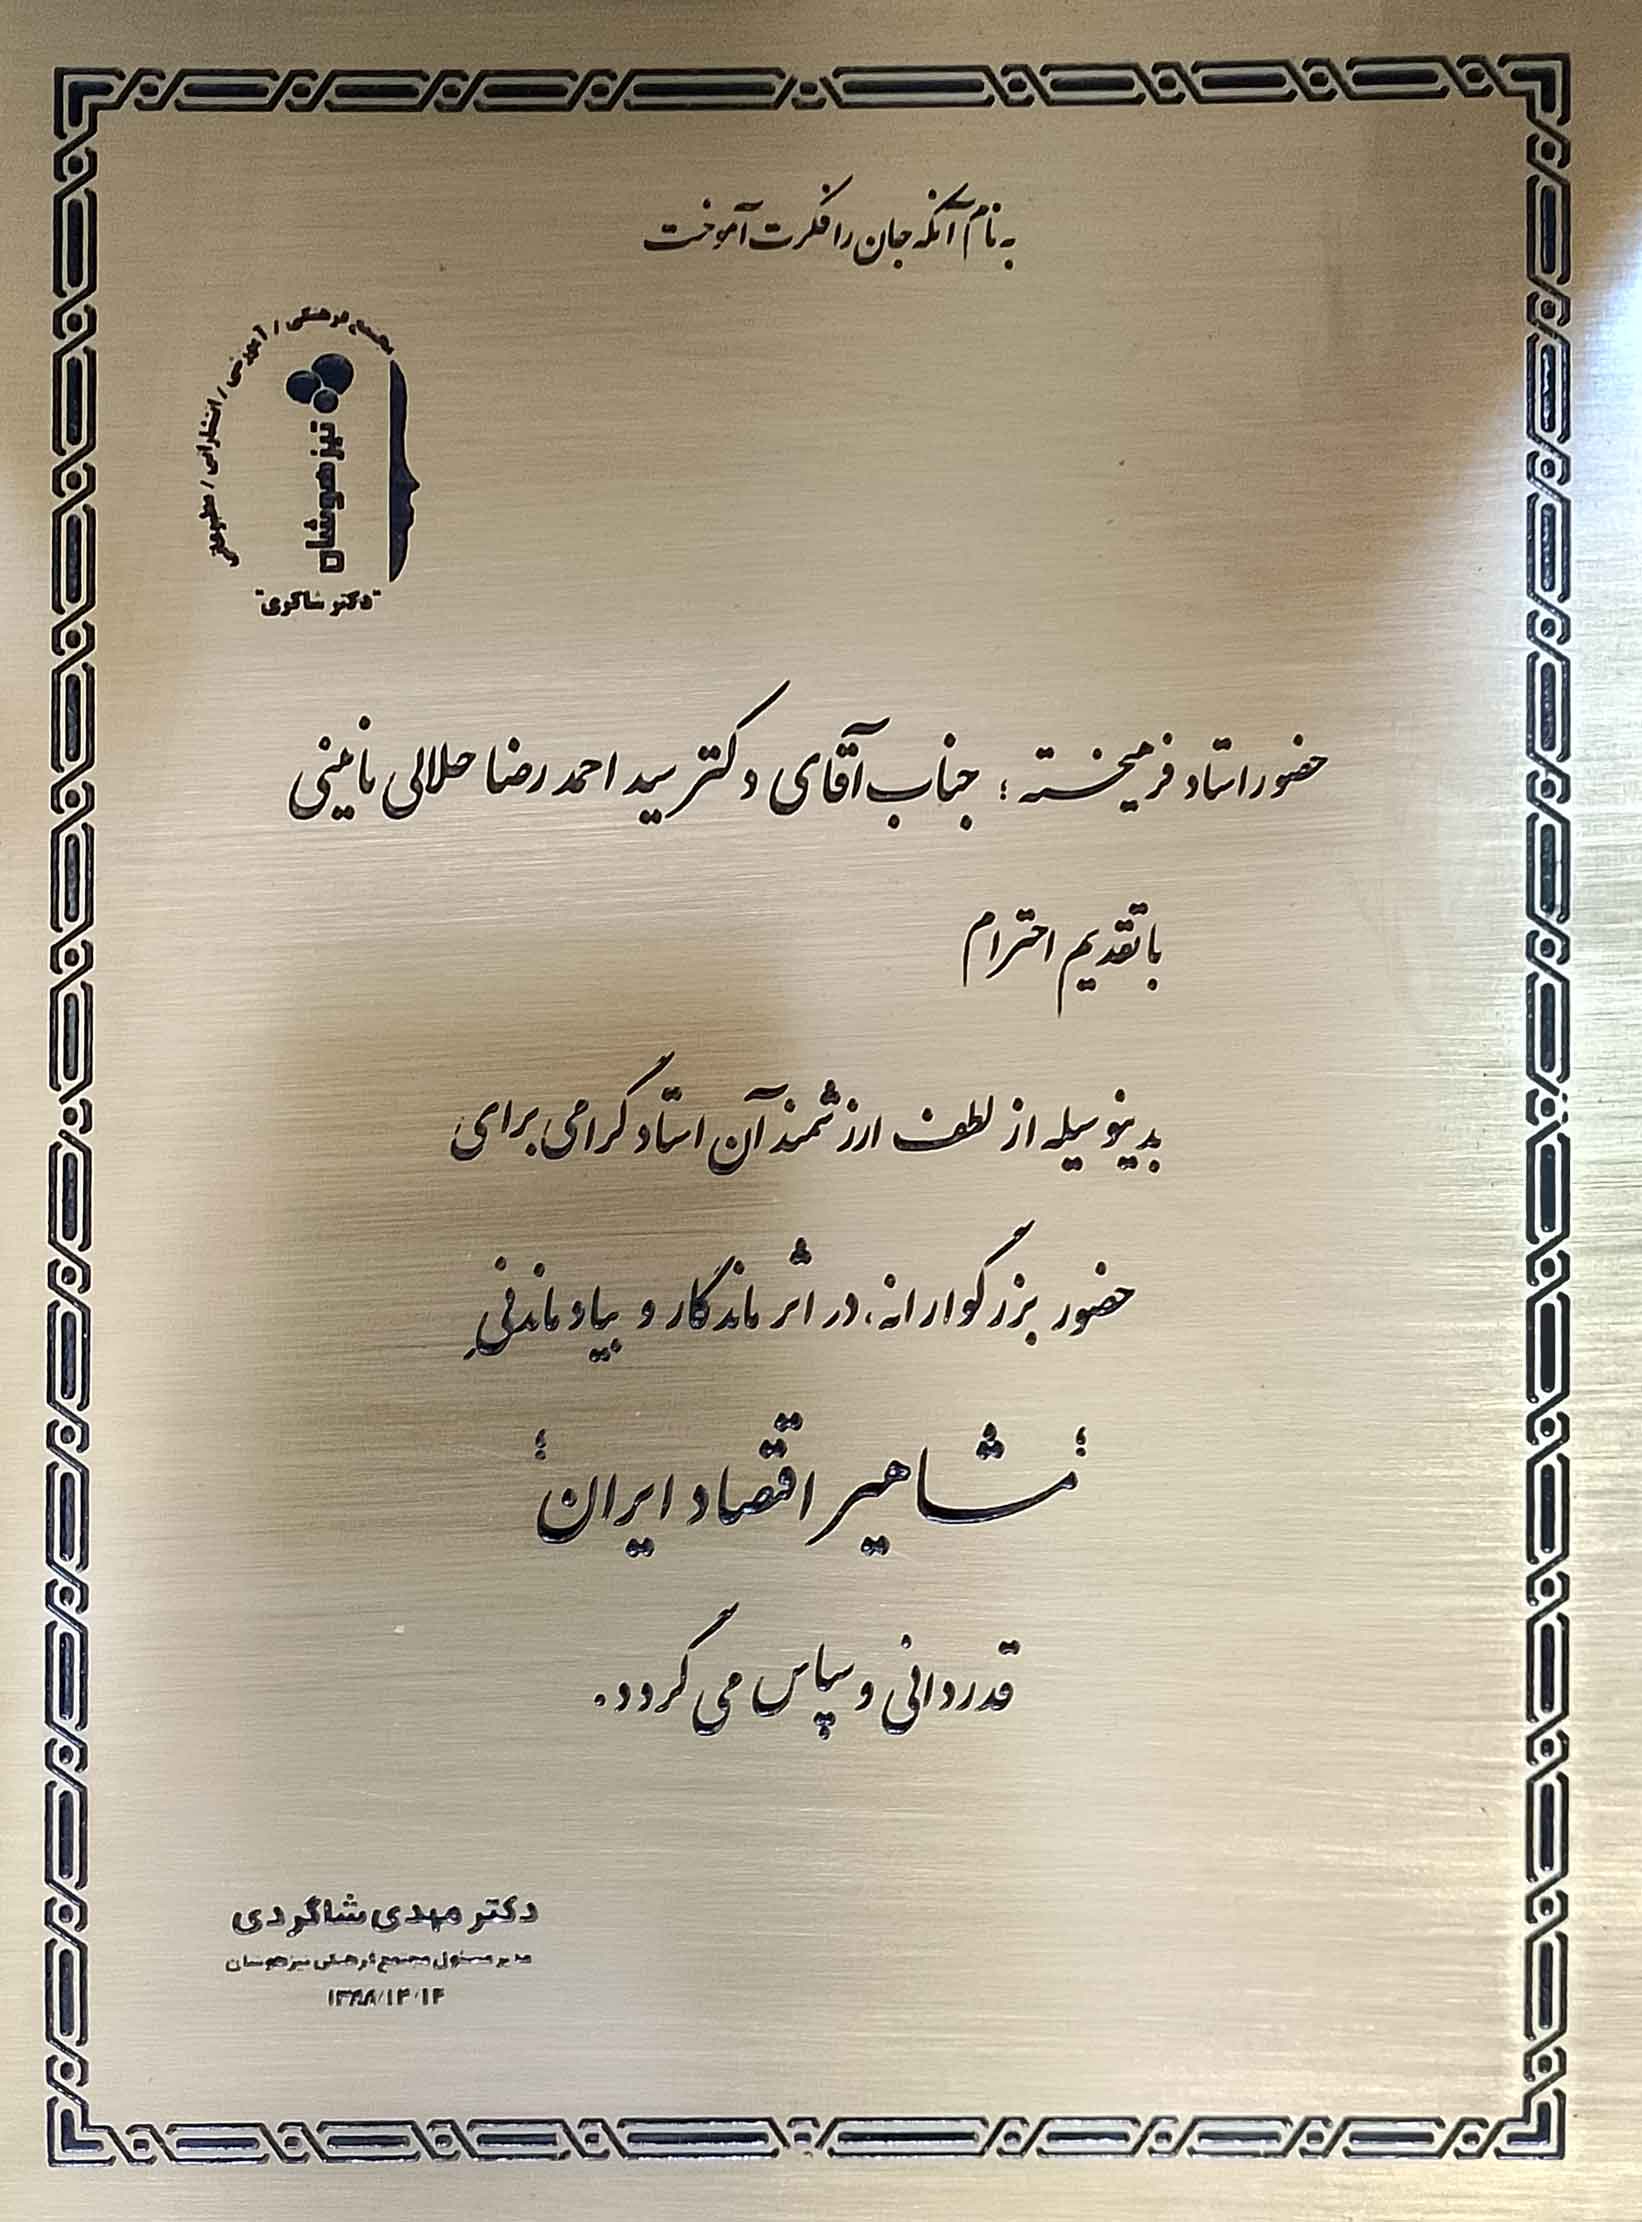 به نام آنکه جان را فکرت آموخت
مجتمع فرهنگی / آموزشی / انتشاراتی / مطبوعاتی
تیزهوشان
"دکتر شاکری"
حضور استاد فرهیخته ؛ جناب آقای دکتر سید احمد رضا جلالی نایینی
با تقدیم احترام
بدینوسیله از لطف ارزشمند آن استاد گرامی برای
حضور بزرگوارانه، در اثر ماندگار و بیاد ماندنیِ
؛مشاهیر اقتصاد ایران؛
قدردانی و سپاس می گردد.
دکتر مهدی شاگردی
مدیر مسئول مجتمع فرهنگی تیزهوشان
۱۳۸۸/۱۲/۱۲